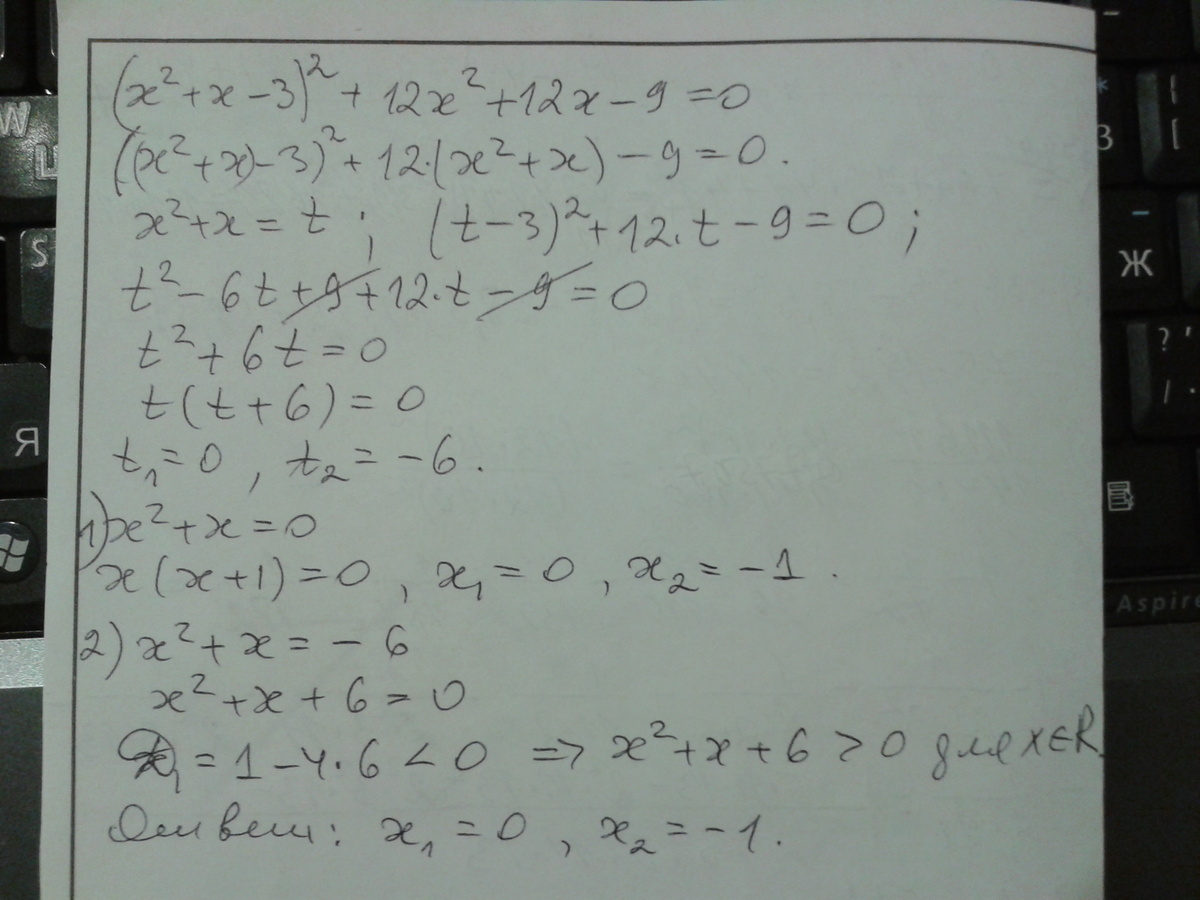 (x²+x-3)²+12x²+12x-9=0
((x²+x)-3)²+12·(x²+x)-9=0.
x²+x=t; (t-3)²+12·t-9=0;
t²-6t+9+12·t-9=0
t²+6t=0
t(t+6)=0
t₁=0, t₂=-6.
1) x²+x=0
x(x+1)=0, x₁=0, x₂=-1.
2) x²+x=-6
x²+x+6=0
=1-4·6<0 => x²+x+6>0 для x∈R.
Ответ: x₁=0, x₂=-1.
W
Ц
S
Я
*
З
[
Ж
?
/
Aspire